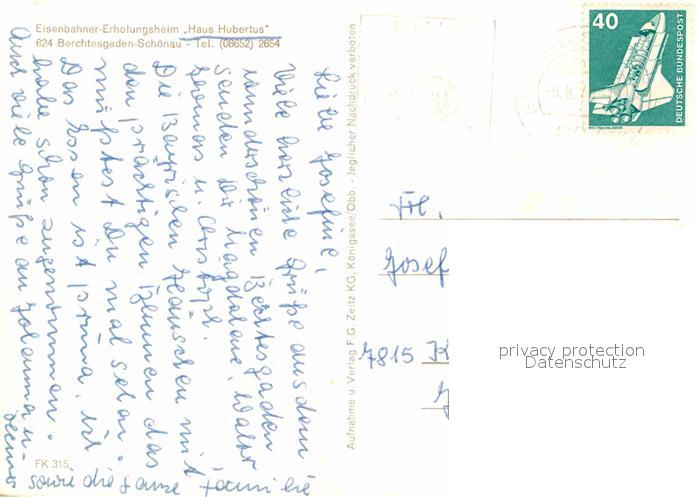 Eisenbahner-Erholungsheim „Haus Hubertus"
824 Berchtesgaden-Schönau - Tel. (08652) 2654
Liebe Josefine,
Viele herzliche Grüße aus dem
wunderschönen Berchtesgaden
senden Dir Magdalena, Walter
Thomas u. Christoph.
Die Bayrischen Häuschen mit
den prächtigen Blumen das
müßtest Du mal sehen.
Das Essen ist prima, ich
habe schon zugenommen.
Auch viele Grüße an Johanna u.
sowie die ganze Familie
FK 315
Aufnahme u. Verlag F.G. Zeitz KG, Königssee/Obb. - Jeglicher Nachdruck verboten
40
DEUTSCHE BUNDESPOST
WELTRAUMLABOR
Frl.
Josef
7815 K
privacy protection
Datenschutz